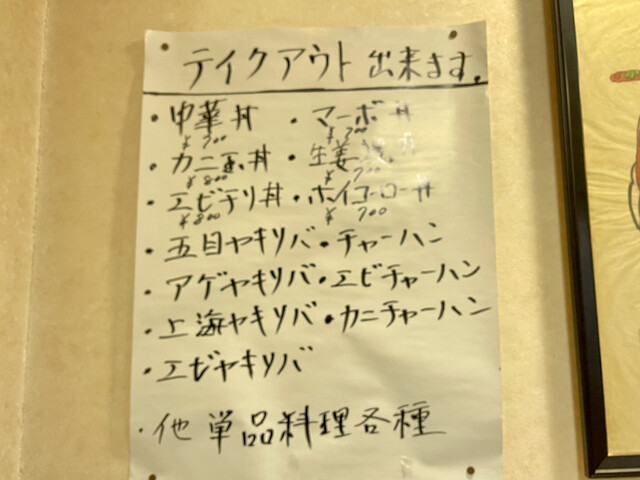 テイクアウト出来ます。
・中華丼 ・マーボ丼
¥700 ¥700
・カニ玉丼 ・生姜焼丼
¥800 ¥700
・エビチリ丼・ホイコーロー丼
¥800 ¥700
・五目ヤキソバ・チャーハン
・アゲヤキソバ・エビチャーハン
・上海ヤキソバ・カニチャーハン
・エビヤキソバ
・他単品料理各種